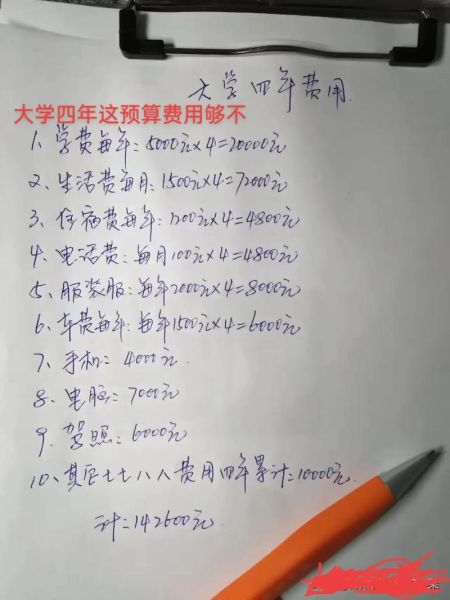 大学四年费用.
大学四年这预算费用够不
1、学费每年:5000元×4=20000元
2、生活费每月:1500元×4=72000元
3、住宿费每年:1200元×4=4800元
4、电话费:每月100元×4=4800元
5、服装服:每年2000元×4=8000元
6、车费每年:每年1500元×4=6000元
7、手机:4000元.
8、电脑:7000元
9、驾照:6000元
10、其它七七八八费用四年累计:10000元.
计=142600元.